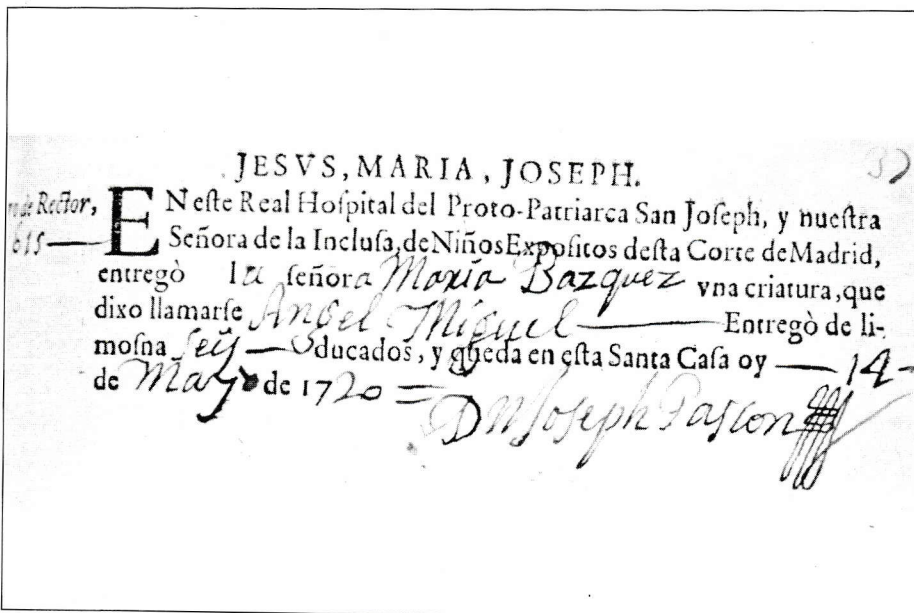 JESVS, MARIA, JOSEPH.
37
Rector,
EN este Real Hospital del Proto-Patriarca San Joseph, y nuestra
615 — Señora de la Inclusa, de Niños Expositos desta Corte de Madrid,
entregò la señora Maria Bazquez vna criatura, que
dixo llamarse Angel Miguel — Entregò de li-
mosna seis — ducados, y queda en esta Santa Casa oy — 14 -
de Mayo de 1720 =
Dn Joseph Pascon